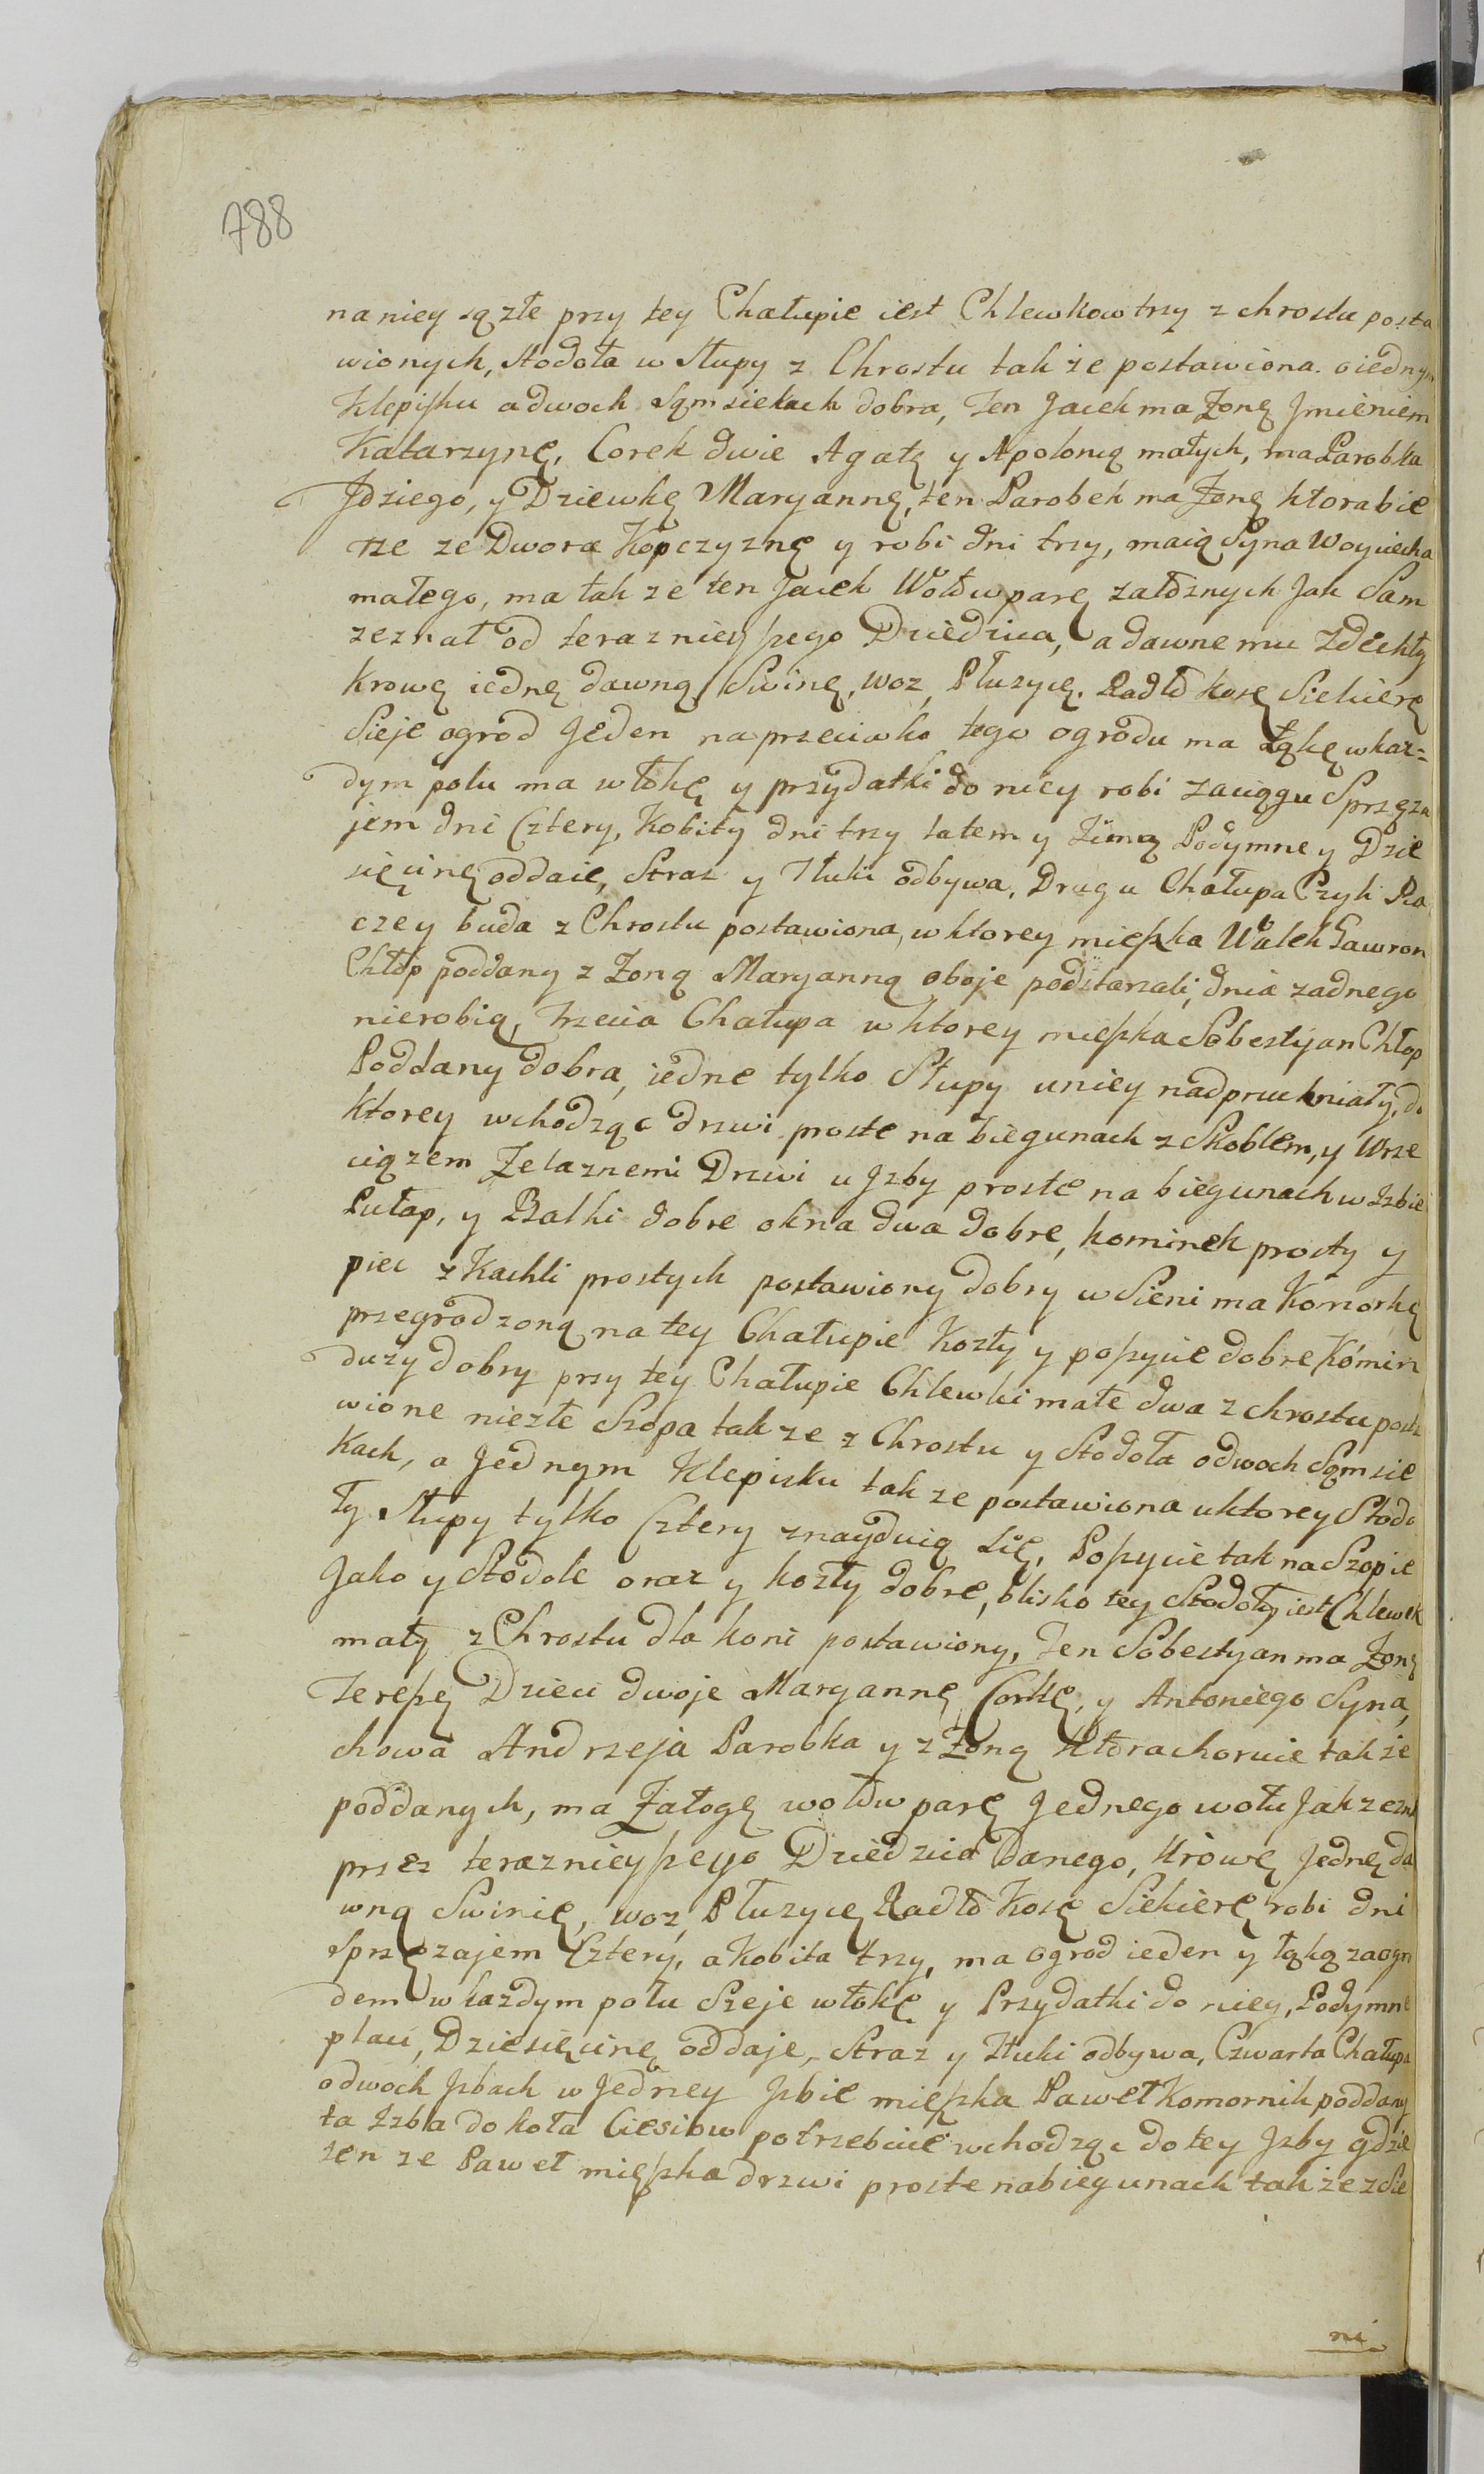 788
na niey są złe przy tey Chałupie iest Chlewkow trzy z chrostu posta
wionych, stodoła w Słupy z Chrostu tak że postawiona. o iednym
Klepisku a dwoch Sąmsiekach dobra, Ten Jacek ma Zonę Jmieniem
Katarzynę, Corek dwie Agatę y Apolonią małych, ma Parobka
Jdziego, y Dziewkę Maryannę, ten Parobek ma Zonę ktora bie
rze ze Dwora Kopczyznę y robi dni trzy, maią Syna Woyciecha
małego, ma tak ze ten Jacek Wołow parę załoznych Jak Sam
zeznał od teraznieyszego Dziedzica, a dawne mu zdechły
Krowę iednę dawną, Swinę, woz, Płuzycę. Radło kosę Siekierę
Sieje ogrod Jeden na przeciwko tego ogrodu ma Łąkę w kaz=
dym polu ma włokę y przydatki do niey robi zaciągu Sprzęza
jem dni Cztery, Kobiety dni trzy latem y Zimą Podymne y Dzie
sięcinę oddaie, Straz y Tłuki odbywa, Druga Chałupa Czyli Ra
czey buda z Chrostu postawiona, w ktorey mieszka Walek Gawron
Chłop poddany z Zoną Maryanną oboje podstarzali, dnia zadnego
nierobią, Trzecia Chałupa w ktorey mieszka Sobestyan Chłop
Poddany dobra, iedne tylko Słupy u niey nadpruchniały, do
ktorey wchodząc drzwi proste na biegunach z Skoblem, y Wrze
ciązem Zelaznemi Drzwi u Jzby proste na biegunach w Izbie
Pułap, y Balki dobre okna dwa dobre, kominek prosty y
piec z Kachli prostych postawiony dobry w Sieni ma Komorkę
przegrodzoną na tey Chałupie Kozły y poszycie dobre Komin
duzy dobry przy tey Chałupie Chlewki małe dwa z chrostu posta
wione niezłe Szopa tak ze z Chrostu y Stodoła o dwoch Sąmsie
kach, a Jednym Klepisku tak ze postawiona u ktorey Stodo
ły Słupy tylko Cztery znayduią się, Poszycie tak na Szopie
Jako y Stodole oraz y kozły dobre, blisko tey Stodoły iest Chlewek
mały z Chrostu dla koni postawiony, Ten Sobestyan ma Zonę
Tereszę Dzieci dwoje Maryannę Corkę, y Antoniego Syna,
chowa Andrzeja Parobka y z Zoną Ktora choruie tak że
poddanych, ma Załogę wołow parę Jednego wołu Jak zezna
przez teraznieyszego Dziedzica danego, Krowę Jednę da
wną Swinię, woz, Płuzycę Radło Kosę Siekierę robi dni
Sprzęzajem Cztery, a Kobita trzy, ma ogrod ieden y łąką za ogro
dem w kazdym polu Szeje włokę y Przydatki do niey, Podymne
płaci, Dziesięcinę oddaje, Straz y Tłuki odbywa, Czwarta Chałupa
o dwoch Jzbach w Jedney Jzbie mieszka Paweł Komornik poddany
ta Izba do koła Ciesiow potrzebuie wchodząc do tey Jzby gdzie
ten ze Paweł mieszka drzwi proste na biegunach tak że z Sie
ni